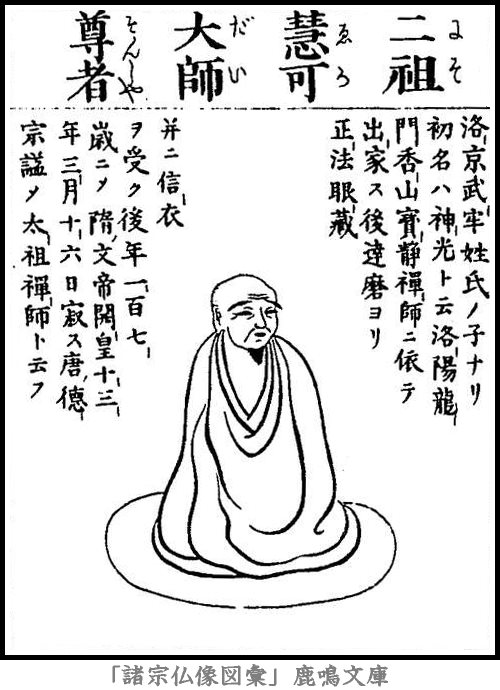 二祖
にそ
慧可
ゑか
大師
だい
尊者
そんしや
洛京武牢姓氏ノ子ナリ
初名ハ神光ト云洛陽龍
門香山寶静禪師ニ依テ
出家ス後達磨ヨリ
正法眼藏
并ニ信衣
ヲ受ク後年一百七
歳ニメ隋文帝開皇十三
年三月十六日寂ス唐德
宗謚メ太祖禪師ト云フ
「諸宗仏像図彙」鹿鳴文庫